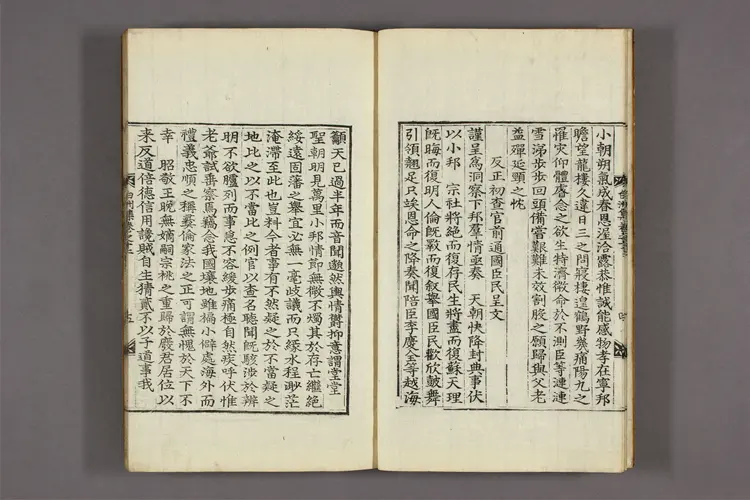 小朝朔氣成春恩渥洽露恭惟誠能感物孝在寧邦
瞻望龍樓久違日三之問寢捷追鶴野幾痛陽九之
罹灾仰體慮念之欲生特濟微命於不測臣等連連
雪涕步步回頭備嘗艱難未效割股之願歸與父老
益殫延頸之忱
反正初査官前通國臣民呈文
謹呈爲洞察下邦羣情亟奏 天朝快降封典事伏
以小邦 宗社將絶而復存民生將盡而復蘇天理
旣晦而復明人倫旣斁而復叙擧國臣民歡欣皷舞
引領翹足只竢恩命之降奏聞陪臣李慶全等越海
籲天已過半年而音聞邈然輿情欝抑意謂堂堂
聖朝明見萬里小邦情節無微不燭其於存亡繼絶
綏遠固藩之擧宜必無一毫歧議而只緣水程眇茫
淹滯至此也豈料今者事有不然疑之於不當疑之
地比之以不當比之例官以査名聽聞旣駭涉於辨
明不欲臚列而事急不容緩步痛極自然疾呼伏惟
老爺試垂察焉竊念我國壤地雖褊小僻處海外而
禮義忠順之稱彛倫家法之正可謂無愧於天下不
幸 昭敬王晩無嫡嗣宗祧之重歸於廢君居位以
来反道倍德信用讒賊自生猜貳不以子道事我